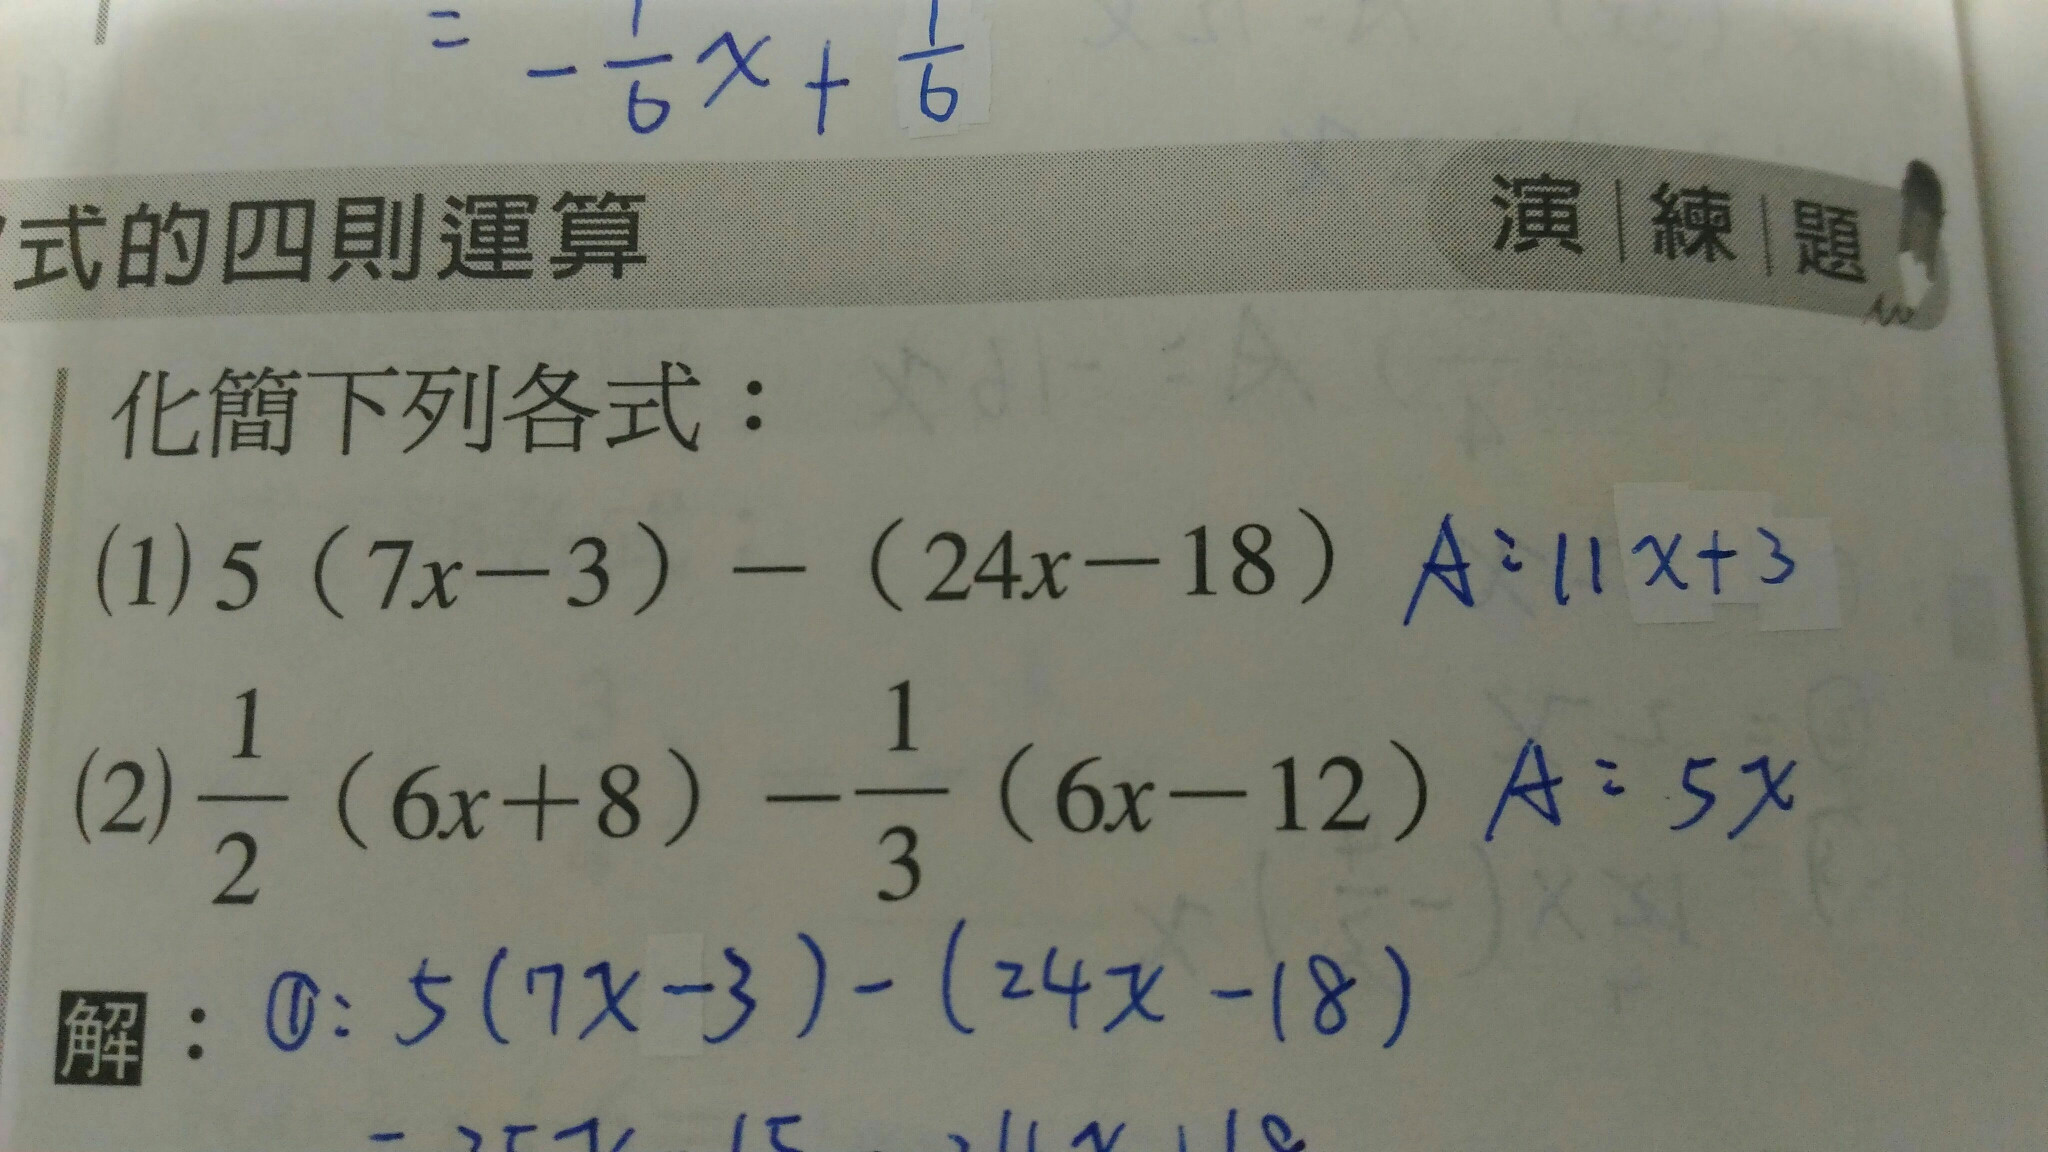 = -1/6 x + 1/6
式的四則運算 演|練|題
化簡下列各式：
(1) 5（7x－3）－（24x－18） A：11x+3
(2) 1/2（6x＋8）－1/3（6x－12） A：5x
解：①: 5(7x-3)-(24x-18)
= 35x-15-24x+18